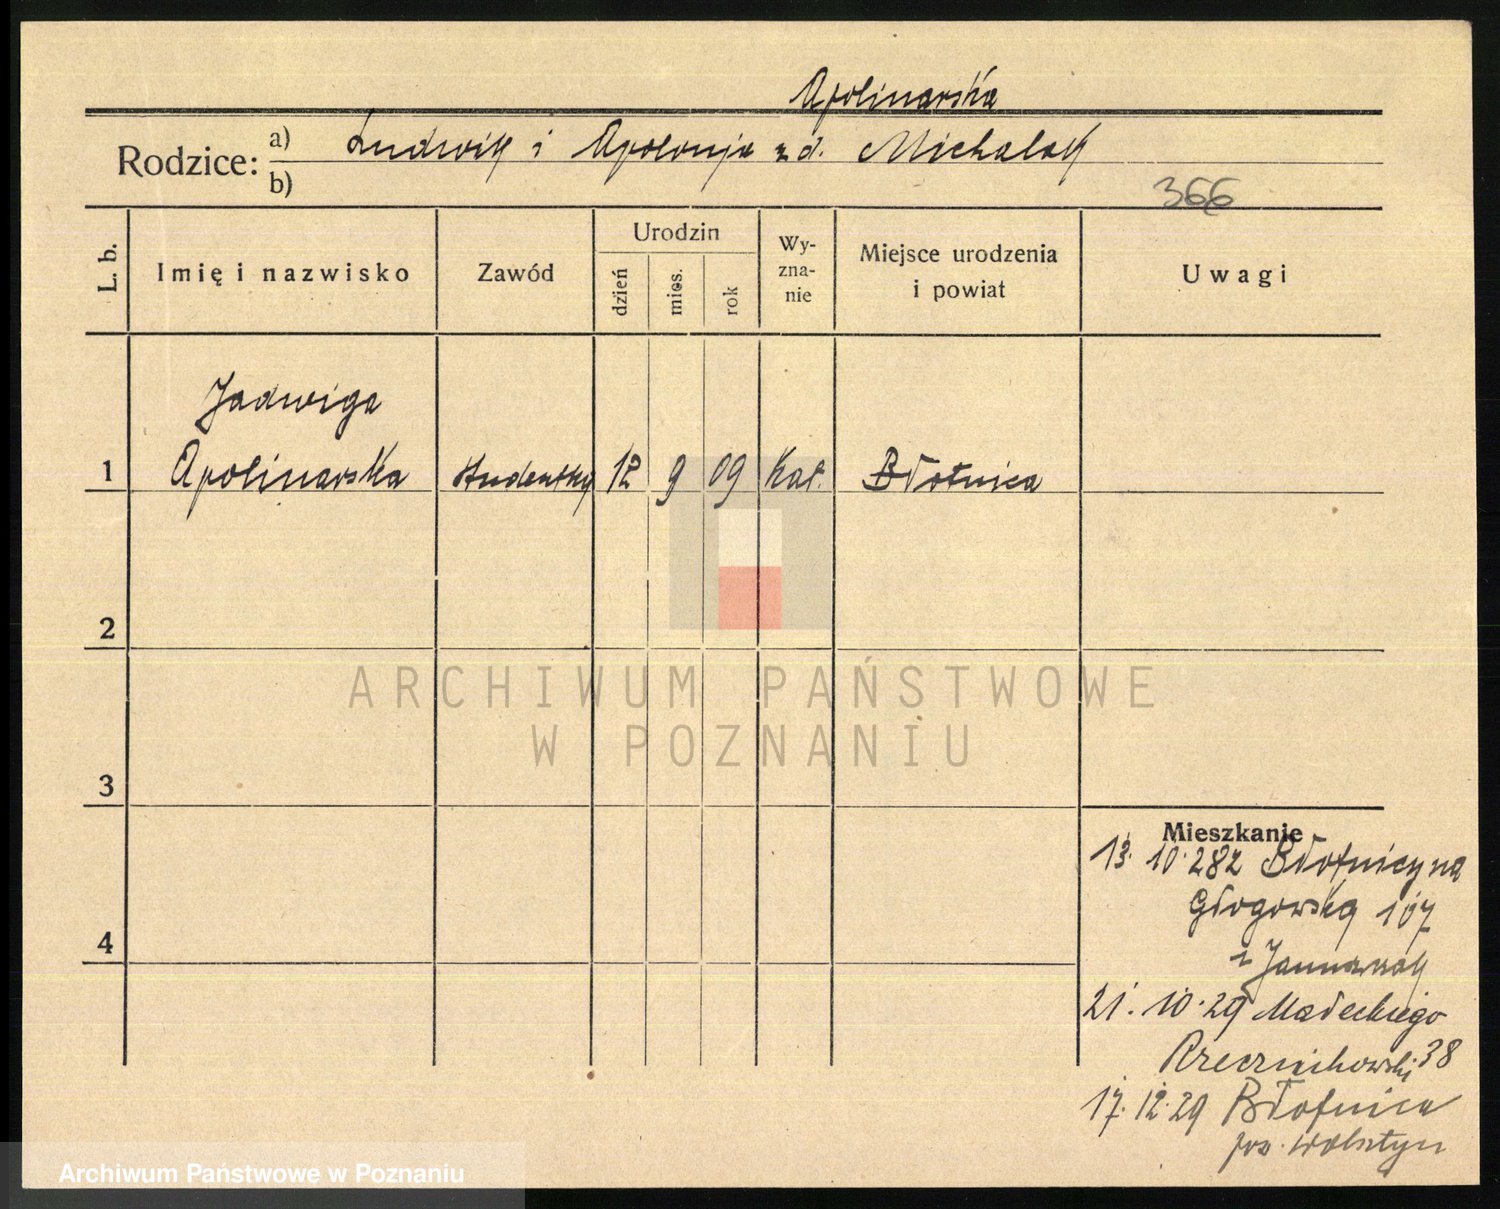 Apolinarska
Rodzice: a) Ludwik i Apolonja z d. Michalak
b)
366
L. b.
Imię i nazwisko
Zawód
Urodzin
dzień
mies.
rok
Wy-
zna-
nie
Miejsce urodzenia
i powiat
Uwagi
Jadwiga
1 Apolinarska studentka 12 9 09 Kat. Błotnica
2
3
4
ARCHIWUM PAŃSTWOWE
W POZNANIU
Mieszkanie
13. 10. 28 z Błotnicy na
Głogowską 107
21. 10. 29 Małeckiego
38
17. 12. 29 Błotnica
pow. Wolsztyn
Archiwum Państwowe w Poznaniu